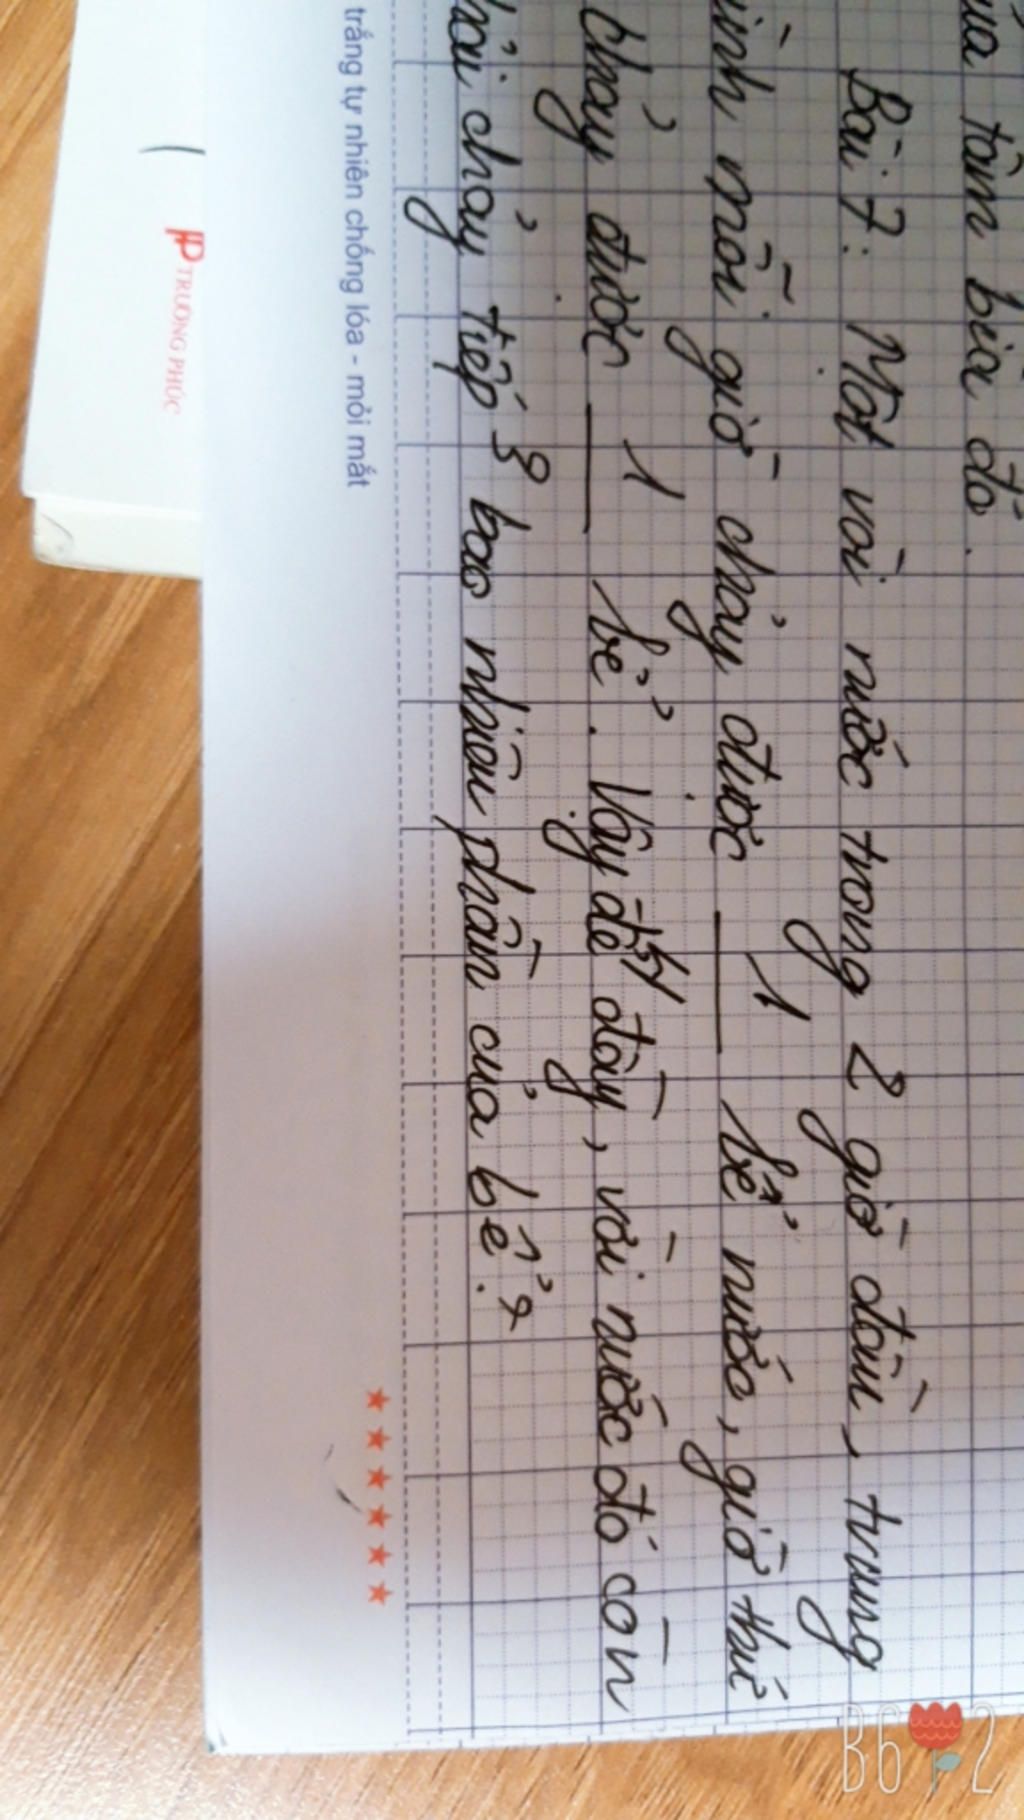 tấm bìa đó.
Bài 7: Một vòi nước trong 2 giờ đầu, trung
ình mỗi giờ chảy được 1/4 bể nước, giờ thứ
chảy được 1/3 bể. Vậy để đầy, vòi nước đó còn
hải chảy tiếp bao nhiêu phần của bể?
trắng tự nhiên chống lóa - mỏi mắt
TRƯƠNG PHÚC
B612